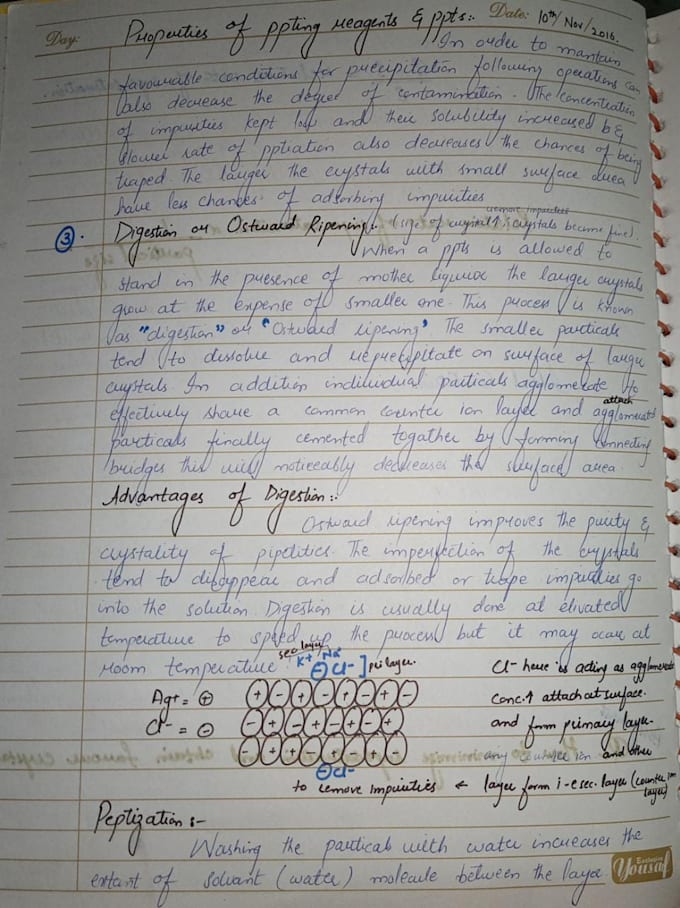 Day: Properties of ppting reagents & ppts:. Date: 10th/Nov/2016.
In order to mantain
favourable conditions for precipitation following operations can
also decrease the degree of contamination. The concentration
of impurities kept low and their solubility increased b &
slower rate of pptiation also decreases the chances of being
traped. The larger the crystals with small surface area
have less chances of adsorbing impurities
remove impurities
3. Digestion or Ostward Ripening:. (size of crystal↑, crystals become fine).
When a ppts is allowed to
stand in the presence of mother liquior the larger crystals
grow at the expense of smaller one. This process is known
as "digestion" or "Ostward ripening" The smaller particals
tend to dissolve and reprecipitate on surface of larger
crystals. In addition indiluidual particals agglomerate to
attach
effectively share a common counter ion layer and agglomerated
particals finally cemented togather by forming connecting
bridges this will noticeably decreases the surface area.
Advantages of Digestion:.
Ostward ripening improves the purity &
crystality of The imperfection of the crystals
tend to disappear and adsorbed or trape impurities go
into the solution. Digestion is usually done at elivated
temperature to speed up the process but it may ocar at
room temperature.
sec layer
K+ / Na+
⊖Cl-] pri layer.
Cl- here is acting as agglomerate
Ag+ = ⊕
+ - + - + - + -
conc.↑ attach at surface.
Cl- = ⊖
- + - + - + - +
and form primary layer.
- + - + - + -
any counter ion and other
⊖Cl-
to remove impurities ← layer form i-e sec. layer (counter ion
layer)
Peptization:-
Washing the partical with water increases the
extant of solvant (water) molecule between the layer
Exclusive
Yousaf